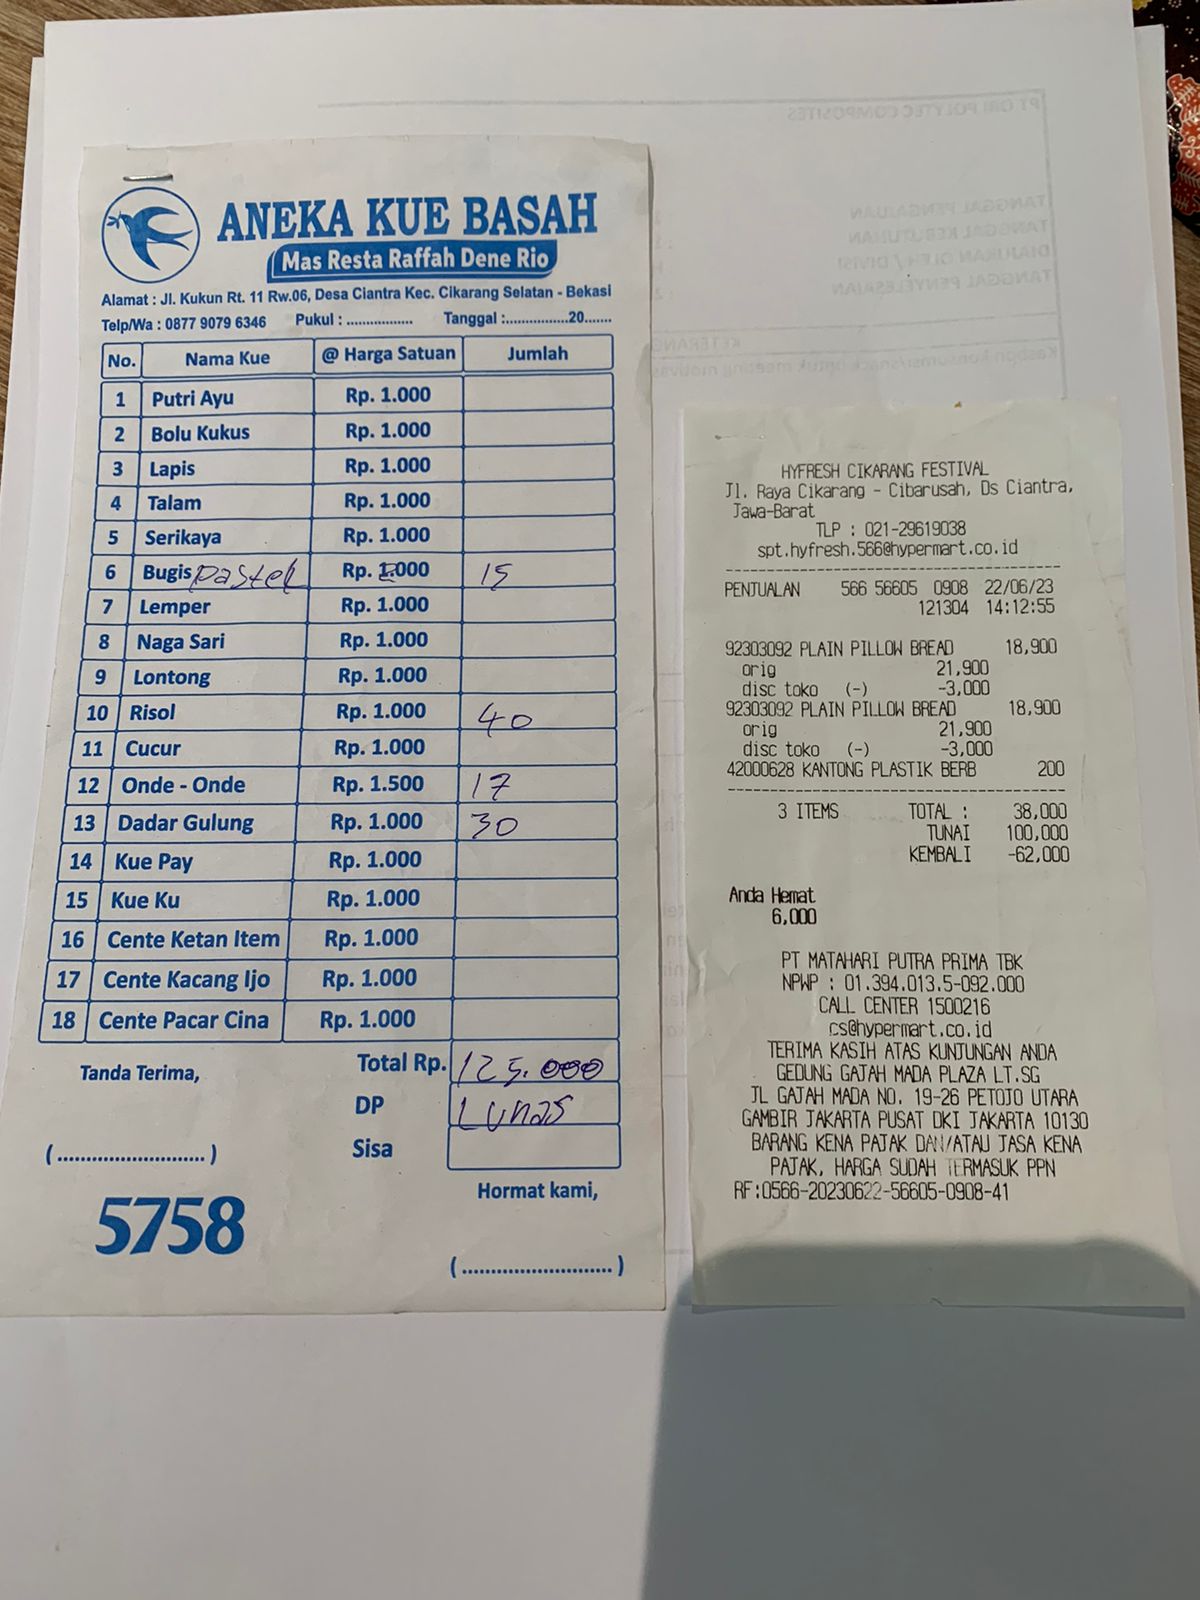 ANEKA KUE BASAH
Mas Resta Raffah Dene Rio
Alamat : Jl. Kukun Rt. 11 Rw.06, Desa Ciantra Kec. Cikarang Selatan - Bekasi
Telp/Wa : 0877 9079 6346 Pukul : ................ Tanggal :...............20.......
No. Nama Kue @ Harga Satuan Jumlah
1 Putri Ayu Rp. 1.000
2 Bolu Kukus Rp. 1.000
3 Lapis Rp. 1.000
4 Talam Rp. 1.000
5 Serikaya Rp. 1.000
6 Bugis Pastel Rp. 000 15
7 Lemper Rp. 1.000
8 Naga Sari Rp. 1.000
9 Lontong Rp. 1.000
10 Risol Rp. 1.000 40
11 Cucur Rp. 1.000
12 Onde - Onde Rp. 1.500 17
13 Dadar Gulung Rp. 1.000 30
14 Kue Pay Rp. 1.000
15 Kue Ku Rp. 1.000
16 Cente Ketan Item Rp. 1.000
17 Cente Kacang Ijo Rp. 1.000
18 Cente Pacar Cina Rp. 1.000
Total Rp. 125.000
Tanda Terima,
DP Lunas
Sisa
(..........................)
Hormat kami,
5758
(..........................)
HYFRESH CIKARANG FESTIVAL
Jl. Raya Cikarang - Cibarusah, Ds Ciantra,
Jawa-Barat
TLP : 021-29619038
spt.hyfresh.566@hypermart.co.id
PENJUALAN 566 56605 0908 22/06/23
121304 14:12:55
92303092 PLAIN PILLOW BREAD 18,900
orig 21,900
disc toko (-) -3,000
92303092 PLAIN PILLOW BREAD 18,900
orig 21,900
disc toko (-) -3,000
42000628 KANTONG PLASTIK BERB 200
3 ITEMS TOTAL : 38,000
TUNAI 100,000
KEMBALI -62,000
Anda Hemat
6,000
PT MATAHARI PUTRA PRIMA TBK
NPWP : 01.394.013.5-092.000
CALL CENTER 1500216
cs@hypermart.co.id
TERIMA KASIH ATAS KUNJUNGAN ANDA
GEDUNG GAJAH MADA PLAZA LT.SG
JL GAJAH MADA NO. 19-26 PETOJO UTARA
GAMBIR JAKARTA PUSAT DKI JAKARTA 10130
BARANG KENA PAJAK DAN/ATAU JASA KENA
PAJAK, HARGA SUDAH TERMASUK PPN
RF:0566-20230622-56605-0908-41